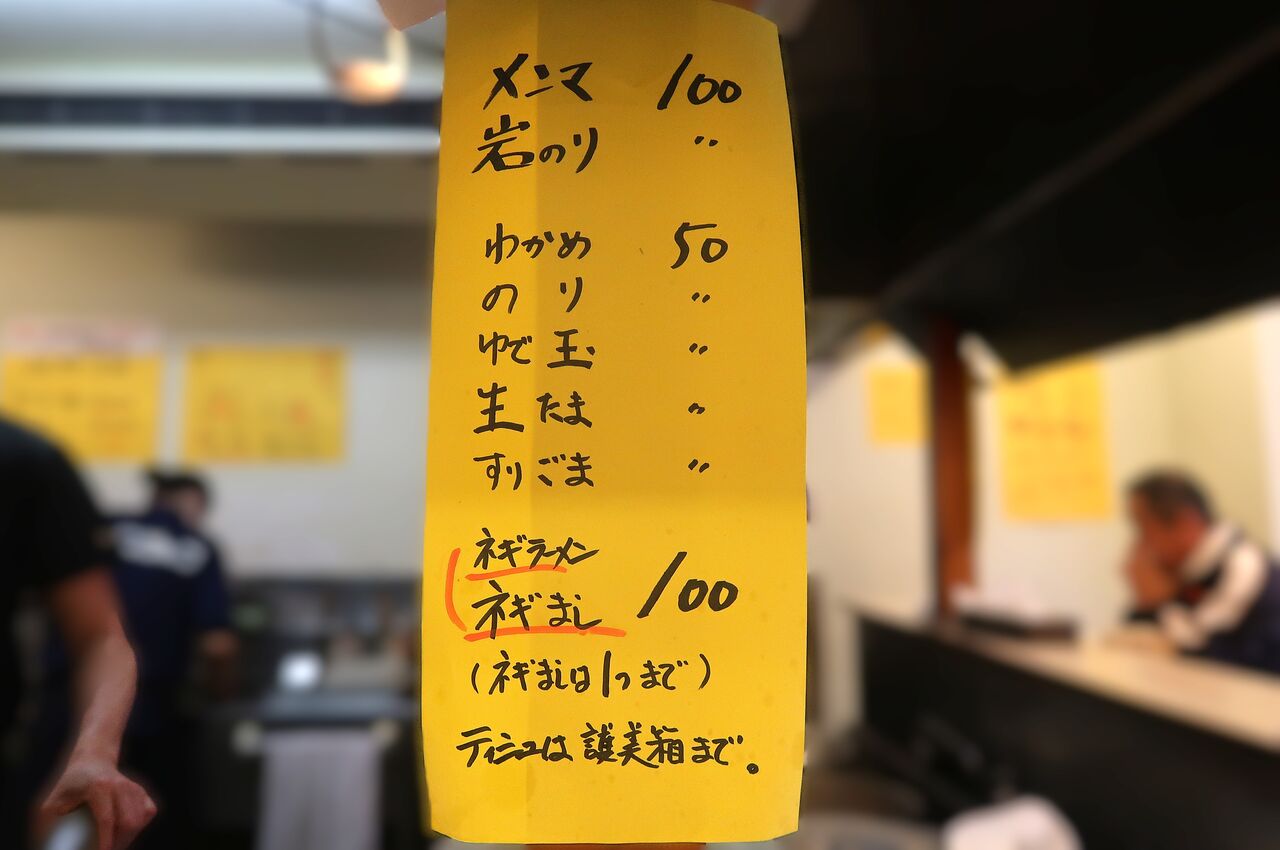 メンマ 100
岩のり 〃
わかめ 50
のり 〃
ゆで玉 〃
生たま 〃
すりごま 〃
ネギラーメン
ネギまし 100
(ネギましは1つまで)
ティシュは護美箱まで。